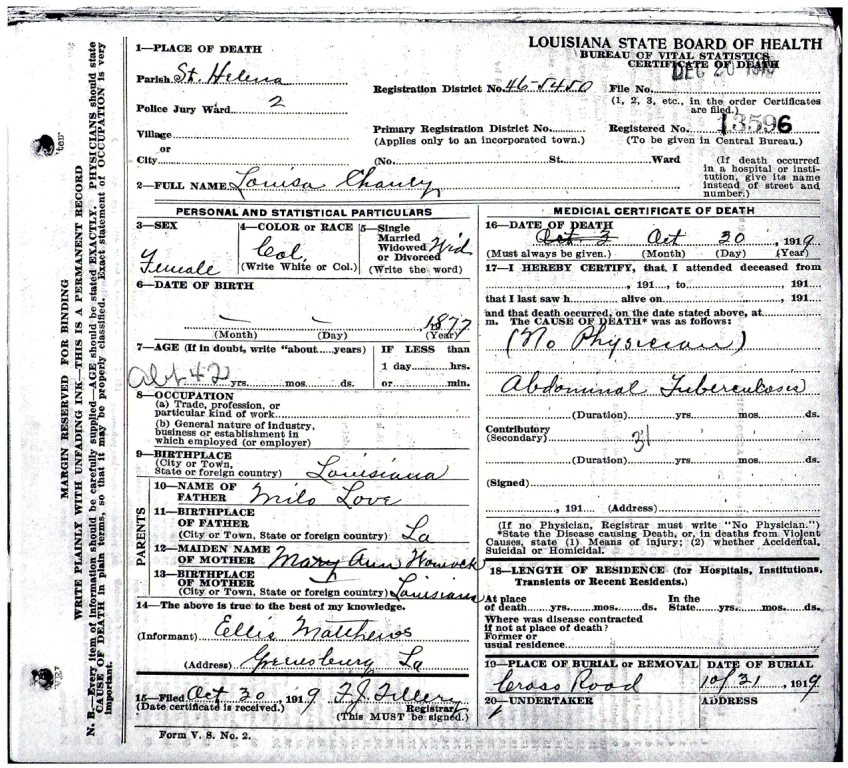 LOUISIANA STATE BOARD OF HEALTH
BUREAU OF VITAL STATISTICS
CERTIFICATE OF DEATH
DEC 20 1919
1—PLACE OF DEATH
Parish St. Helena
Police Jury Ward 2
Village
or
City
Registration District No. 46-5450 File No.
(1, 2, 3, etc., in the order Certificates are filed.)
Primary Registration District No. Registered No. 13596
(Applies only to an incorporated town.) (To be given in Central Bureau.)
(No. St. Ward (If death occurred in a hospital or insti-
tution, give its name
instead of street and
number.)
2—FULL NAME Louisa Chaney
PERSONAL AND STATISTICAL PARTICULARS
3—SEX
Female
4—COLOR or RACE
Col.
(Write White or Col.)
5—Single
Married
Widowed
or Divorced Wid
(Write the word)
6—DATE OF BIRTH
— — 1877
(Month) (Day) (Year)
7—AGE (If in doubt, write "about.....years)
Abt 42 yrs. mos. ds.
IF LESS than
1 day hrs.
or min.
8—OCCUPATION
(a) Trade, profession, or
particular kind of work
(b) General nature of industry,
business or establishment in
which employed (or employer)
9—BIRTHPLACE
(City or Town,
State or foreign country) Louisiana
PARENTS
10—NAME OF
FATHER Milo Love
11—BIRTHPLACE
OF FATHER
(City or Town, State or foreign country) La
12—MAIDEN NAME
OF MOTHER Mary Ann
13—BIRTHPLACE
OF MOTHER
(City or Town, State or foreign country) Louisiana
14—The above is true to the best of my knowledge.
(Informant) Ellis Matthews
(Address) Greensburg La
15—Filed Oct 30, 1919
(Date certificate is received.) Registrar
(This MUST be signed.)
Form V. S. No. 2.
MEDICAL CERTIFICATE OF DEATH
16—DATE OF DEATH
Oct 3 Oct 30, 1919
(Must always be given.) (Month) (Day) (Year)
17—I HEREBY CERTIFY, that I attended deceased from
, 191 , to , 191
that I last saw h alive on , 191
and that death occurred, on the date stated above, at
m. The CAUSE OF DEATH* was as follows:
(No Physician)
Abdominal Tuberculosis
(Duration) yrs. mos. ds.
Contributory
(Secondary)
31
(Duration) yrs. mos. ds.
(Signed)
, 191 (Address)
(If no Physician, Registrar must write "No Physician.")
*State the Disease causing Death, or, in deaths from Violent
Causes, state (1) Means of injury; (2) whether Accidental,
Suicidal or Homicidal.
18—LENGTH OF RESIDENCE (for Hospitals, Institutions,
Transients or Recent Residents.)
At place In the
of death yrs. mos. ds. State yrs. mos. ds.
Where was disease contracted
if not at place of death?
Former or
usual residence
19—PLACE OF BURIAL or REMOVAL DATE OF BURIAL
Cross Road 10/31, 1919
20—UNDERTAKER ADDRESS
MARGIN RESERVED FOR BINDING
WRITE PLAINLY WITH UNFADING INK—THIS IS A PERMANENT RECORD
N. B.—Every item of information should be carefully supplied—AGE should be stated EXACTLY. PHYSICIANS should state
CAUSE OF DEATH in plain terms, so that it may be properly classified. Exact statement of OCCUPATION is very
important.